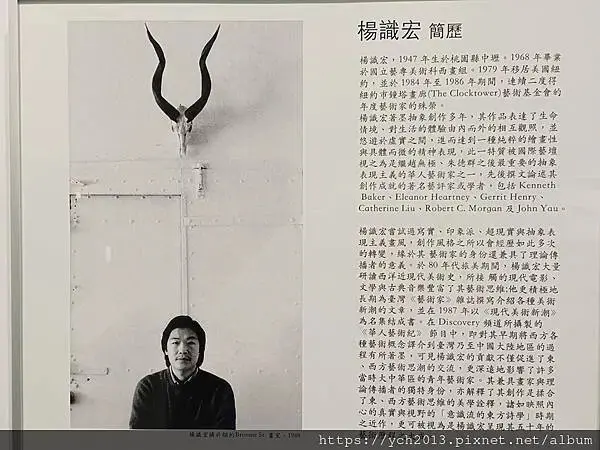 楊識宏 簡歷
楊識宏，1947 年生於桃園縣中壢。1968 年畢業
於國立藝專美術科西畫組。1979 年移居美國紐
約，並於 1984 年至 1986 年期間，連續二度得
紐約市鐘塔畫廊(The Clocktower)藝術基金會的
年度藝術家的殊榮。
楊識宏著墨抽象創作多年，其作品表達了生命
情境、對生活的體驗由內而外的相互觀照，並
悠遊於虛實之間，進而達到一種純粹的繪畫性
與具體而微的精神表現，此一特質被國際藝壇
視之為是繼趙無極、朱德群之後最重要的抽象
表現主義的華人藝術家之一，先後撰文論述其
創作成就的著名藝評家或學者，包括 Kenneth
Baker、Eleanor Heartney、Gerrit Henry、
Catherine Liu、Robert C. Morgan 及 John Yau。
楊識宏嘗試過寫實、印象派、超現實與抽象表
現主義畫風，創作風格之所以會經歷如此多次
的轉變，緣於其藝術家的身份還兼具了理論傳
播者的意義。於 80 年代旅美期間，楊識宏大量
研讀西洋近現代美術史，所接觸的現代電影、
文學與古典音樂豐富了其藝術思維;他更積極地
長期為臺灣《藝術家》雜誌撰寫介紹各種美術
新潮的文章，並在 1987 年以《現代美術新潮》
為名集結成書。在 Discovery 頻道所攝製的
《華人藝術紀》節目中，即對其早期將西方各
種藝術概念譯介到臺灣乃至中國大陸地區的過
程有所著墨，可見楊識宏的貢獻不僅促進了東
、西方藝術思潮的交流，更深遠地影響了許多
當時大中華區的青年藝術家。其兼具畫家與理
論傳播者的獨特身份，亦解釋了其創作是揉合
了東、西方藝術思維的美學詮釋，諸如映照內
心的真實與視野的「意識流的東方詩學」時期
之近作，更可被視為是楊識宏呈現其五十年的
楊識宏攝於紐約Broome St. 畫室，1989
https://ych2013.pixnet.net/album